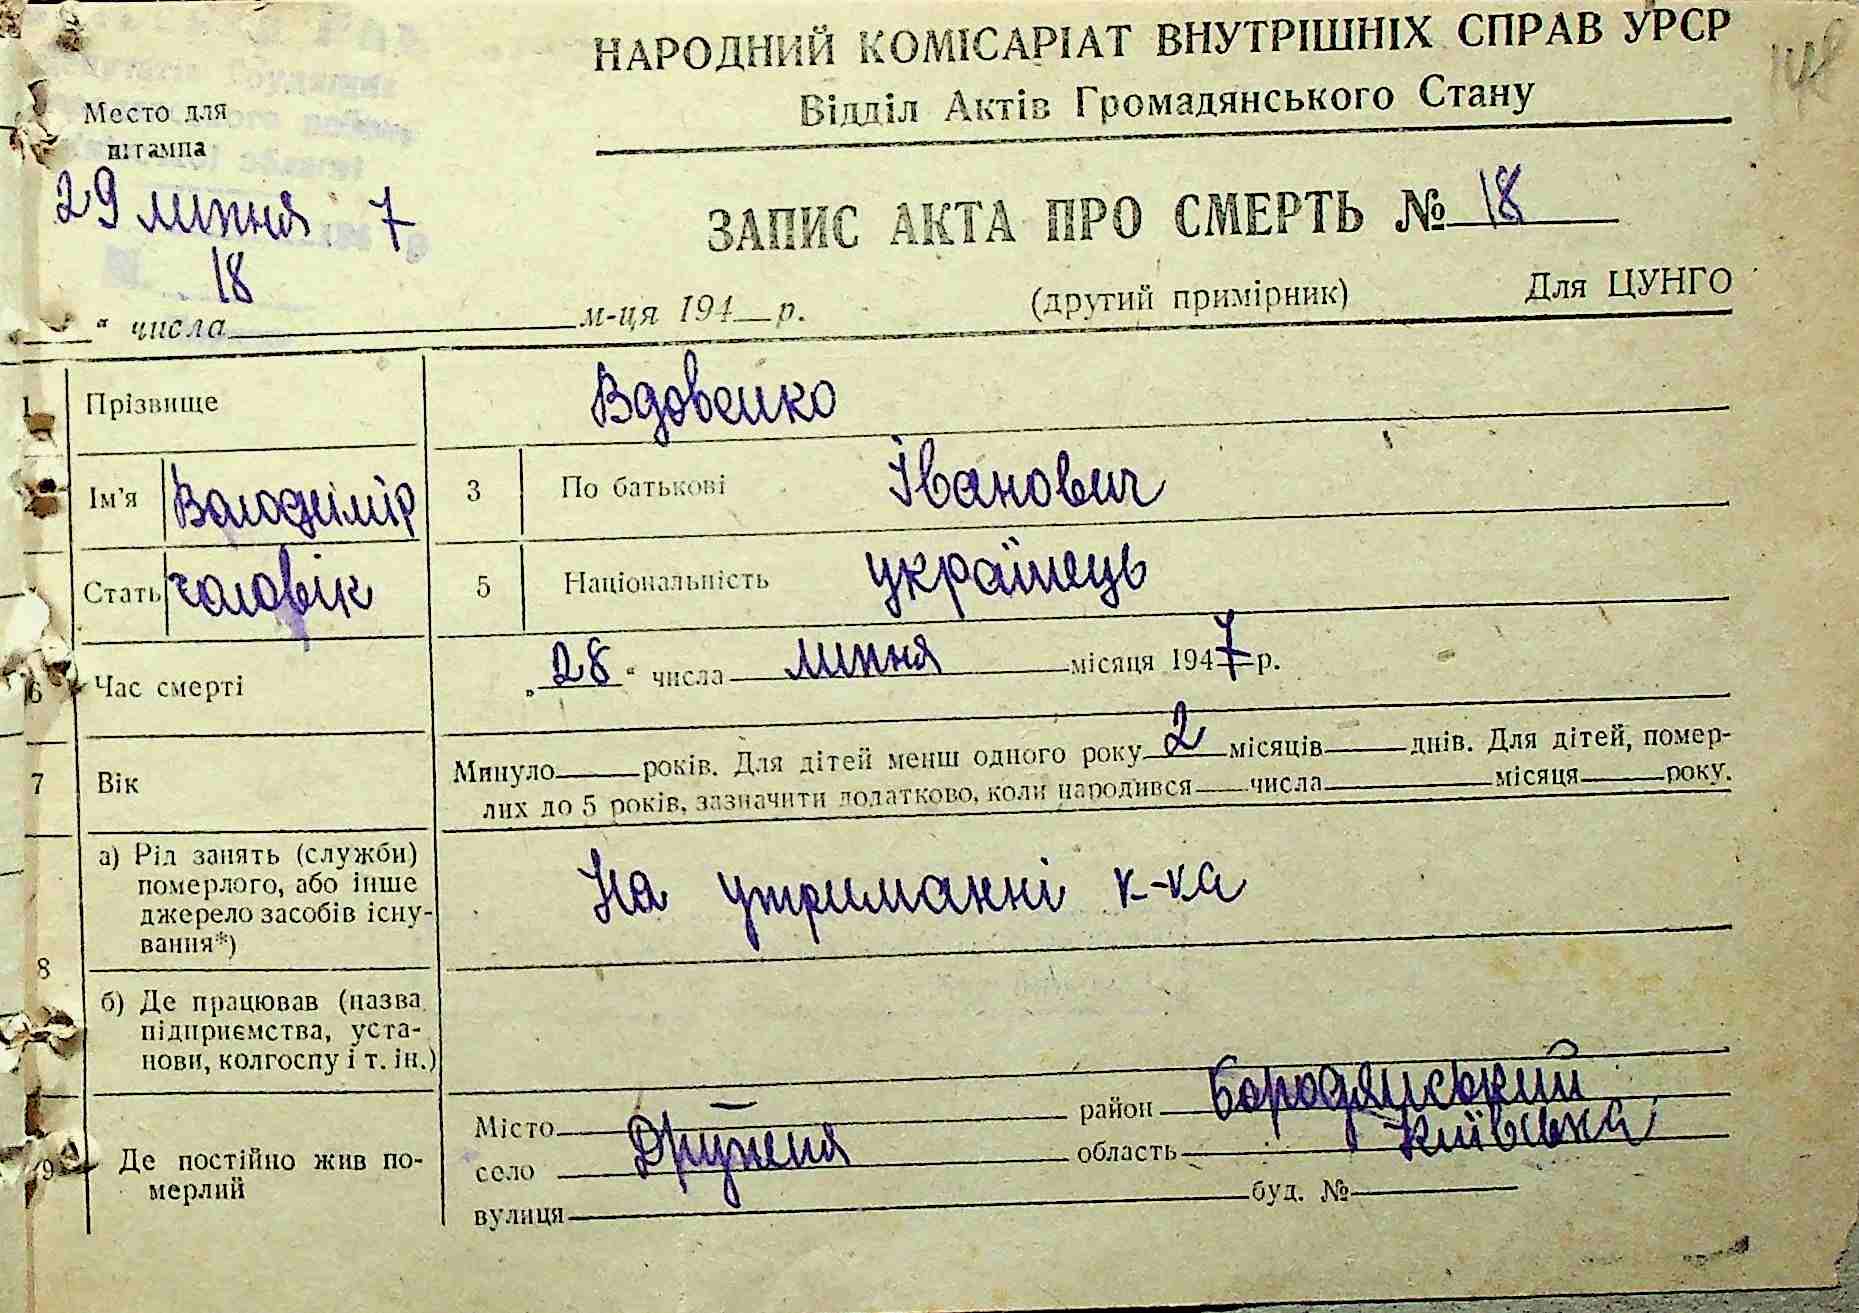 НАРОДНИЙ КОМІСАРІАТ ВНУТРІШНІХ СПРАВ УРСР
Відділ Актів Громадянського Стану
148
Место для
штампа
29 липня 7
18
ЗАПИС АКТА ПРО СМЕРТЬ № 18
(другий примірник) Для ЦУНГО
“ числа м-ця 194 р.
1 Прізвище Вдовенко
2 Ім'я Володимір 3 По батькові Іванович
Стать чоловік 5 Національність українець
6 Час смерті „28“ числа липня місяця 1947 р.
7 Вік Минуло років. Для дітей менш одного року 2 місяців днів. Для дітей, помер-
лих до 5 років, зазначити додатково, коли народився числа місяця року.
8 а) Рід занять (служби)
померлого, або інше
джерело засобів існу-
вання*)
На утриманні к-ка
б) Де працював (назва
підприємства, уста-
нови, колгоспу і т. ін.)
9 Де постійно жив по-
мерлий
Місто район Бородянський
село Дружня область Київська
вулиця буд. №